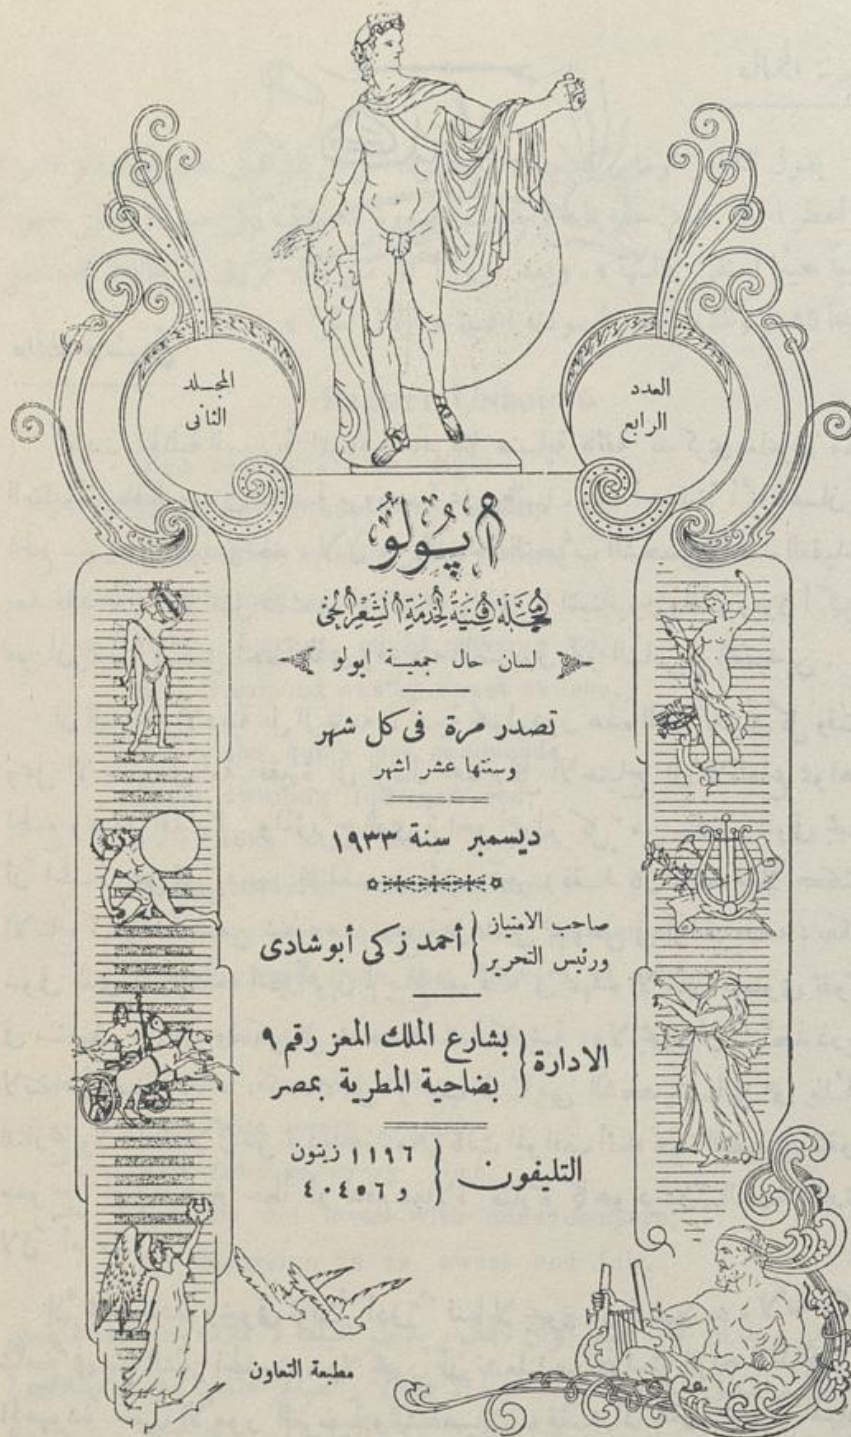 العدد
الرابع
المجلد
الثانى
أپولو
مجلة فنية لخدمة الشعر الحى
لسان حال جمعية ابولو
تصدر مرة فى كل شهر
وسنتها عشر اشهر
ديسمبر سنة ١٩٣٣
صاحب الامتياز
ورئيس التحرير
أحمد زكى أبوشادى
الادارة
بشارع الملك المعز رقم ٩
بضاحية المطرية بمصر
التليفون
١١٩٦ زيتون
و ٤٠٤٥٦
مطبعة التعاون